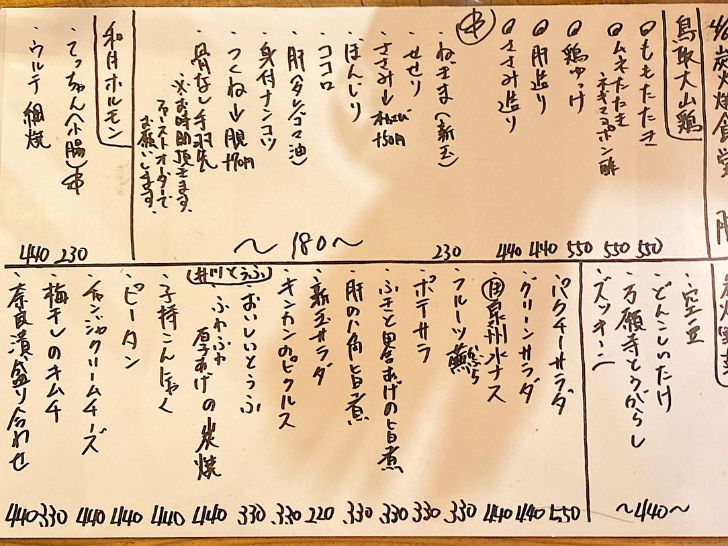 炭焼食堂
鳥取大山鶏
ももたたき 550
ムネたたき 550
ネギマヨポン酢
鶏ゆっけ 550
肝造り 440
ささみ造り 440
串
・ねぎま(新玉) 230
・せせり
・ささみ→わさび +50円
・ぼんじり
・ココロ
・肝ヘタ(レゴマ油)
・身付ナンコツ
・つくね→
・骨なし手羽先
※お時間頂きます。
ファーストオーダーで
お願いします。
～180～
和牛ホルモン
・てっちゃん(小腸)串 230
・ウルテ 網焼 440
・空豆
・どんこしいたけ
・万願寺とうがらし
・ズッキーニ
～440～
・パクチーサラダ 550
・グリーンサラダ 440
・泉州水ナス 440
・フルーツ 330
・ポテサラ 330
・ふきと畠あげの旨煮 330
・肝の八角旨煮 330
・新玉サラダ 220
・キンカンのピクルス 330
井川とうふ
・おいしいとうふ 330
・ふわふわ厚あげの炭焼 440
・子持こんにゃく 440
・ピータン 440
・チャンジャクリームチーズ 440
・梅干しのキムチ 330
・奈良漬盛り合わせ 440